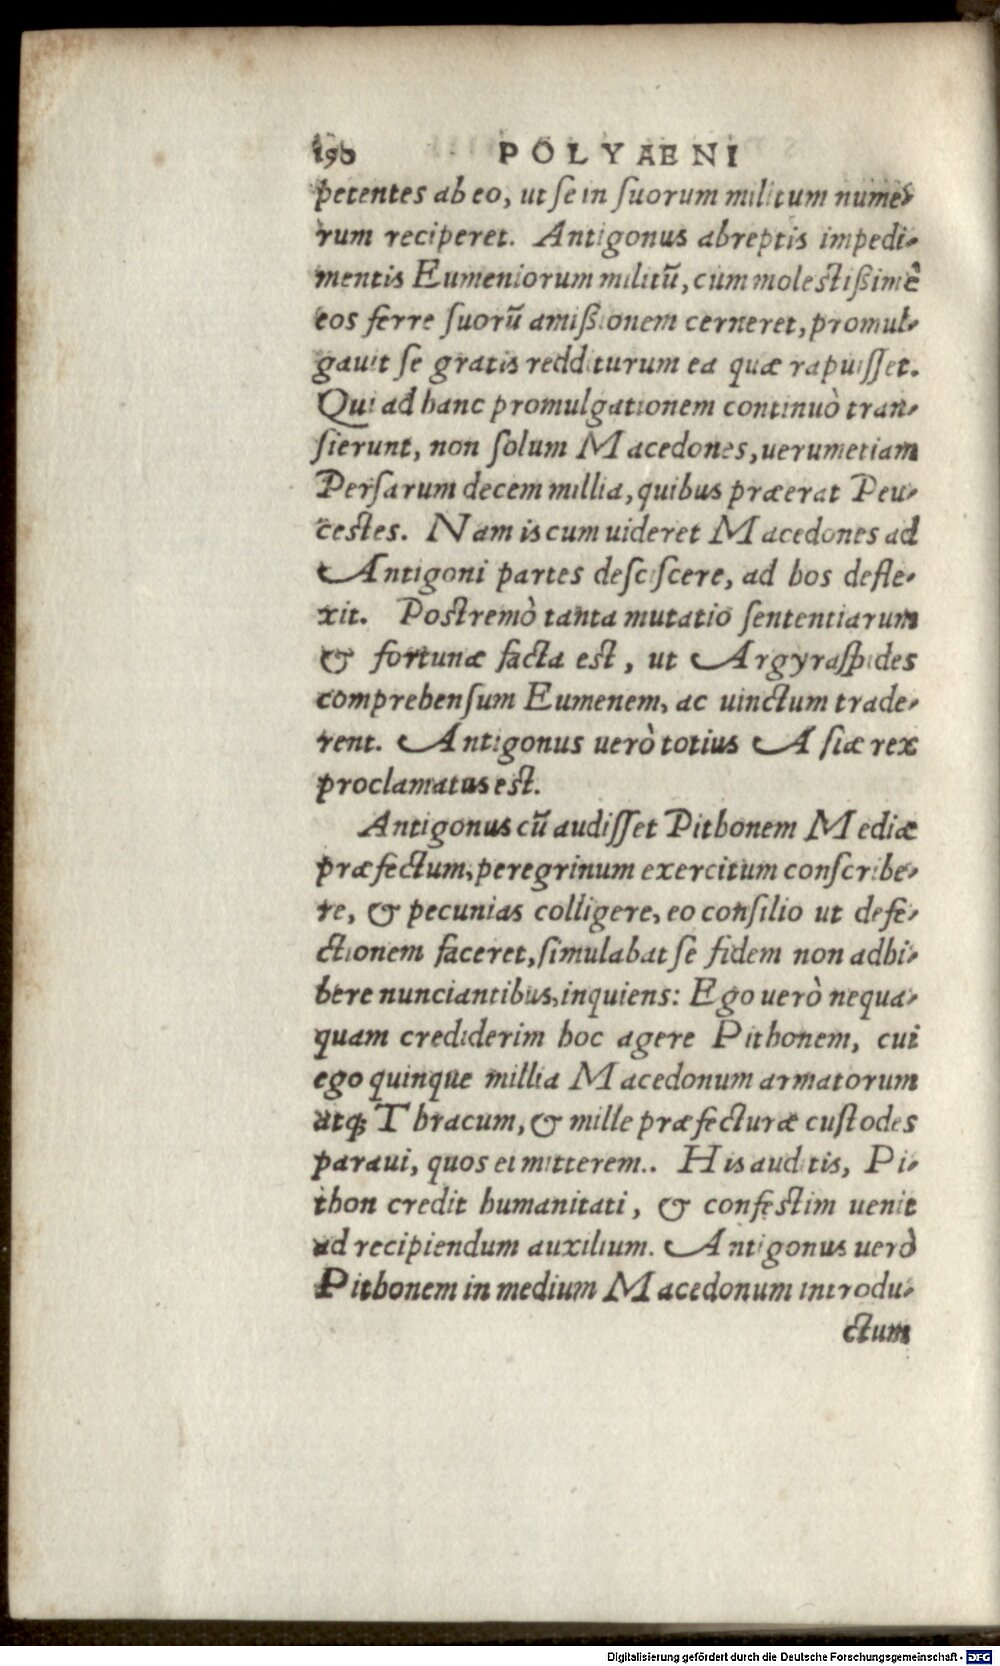 190 POLYAENI
petentes ab eo, ut se in suorum militum nume-
rum reciperet. Antigonus abreptis impedi-
mentis Eumeniorum militũ, cum molestißimè
eos ferre suorũ amißionem cerneret, promul-
gauit se gratis redditurum ea quæ rapuisset.
Qui ad hanc promulgationem continuò tran-
sierunt, non solum Macedones, uerumetiam
Persarum decem millia, quibus præerat Peu-
cestes. Nam is cum uideret Macedones ad
Antigoni partes desciscere, ad hos defle-
xit. Postremò tanta mutatio sententiarum
& fortunæ facta est, ut Argyraspides
comprehensum Eumenem, ac uinctum trade-
rent. Antigonus uerò totius Asiæ rex
proclamatus est.
Antigonus cũ audisset Pithonem Mediæ
præfectum, peregrinum exercitum conscribe-
re, & pecunias colligere, eo consilio ut defe-
ctionem faceret, simulabat se fidem non adhi-
bere nunciantibus, inquiens: Ego uerò nequa-
quam crediderim hoc agere Pithonem, cui
ego quinque millia Macedonum armatorum
atq; Thracum, & mille præfecturæ custodes
paraui, quos ei mitterem.. His auditis, Pi-
thon credit humanitati, & confestim uenit
ad recipiendum auxilium. Antigonus uerò
Pithonem in medium Macedonum introdu-
ctum
Digitalisierung gefördert durch die Deutsche Forschungsgemeinschaft - DFG